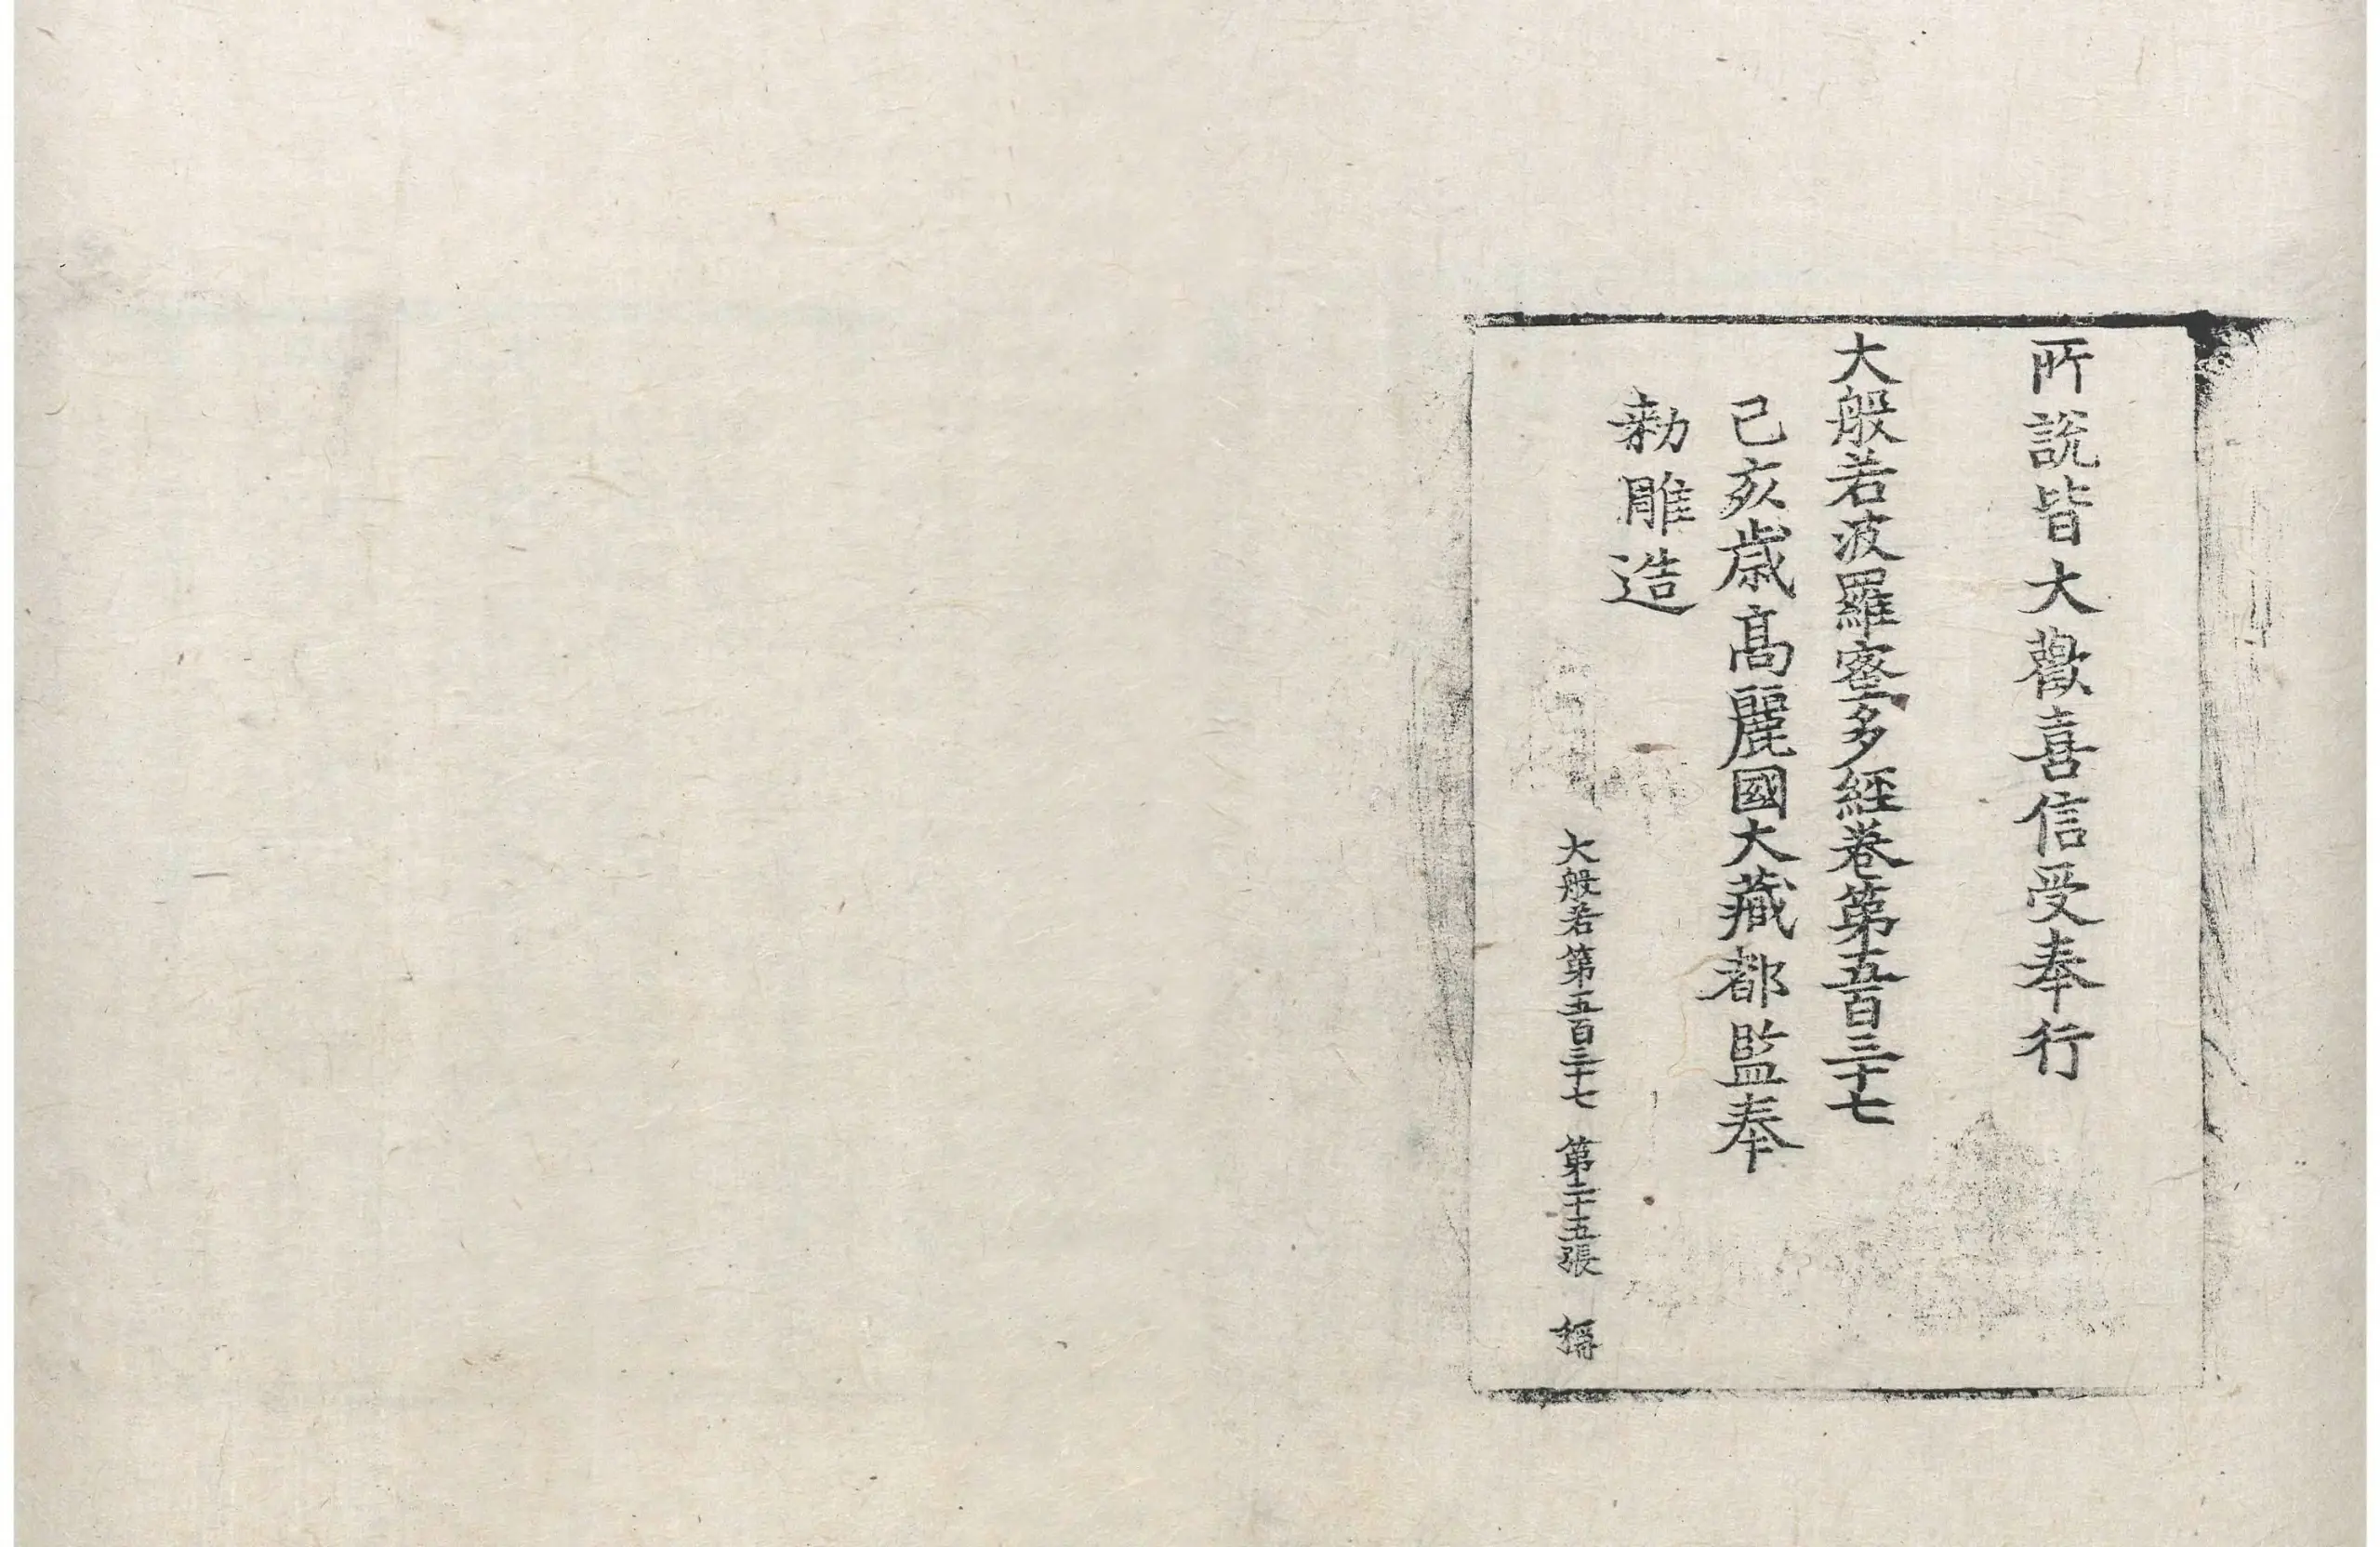 所說皆大歡喜信受奉行
大般若波羅蜜多經卷第五百三十七
己亥歲高麗國大藏都監奉
勑雕造
大般若第五百三十七 第二十五張 稱